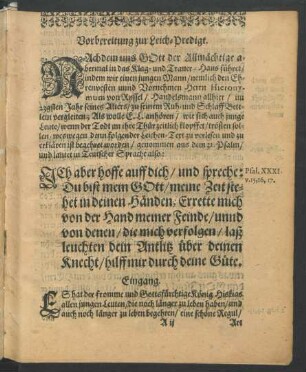 Vorbereitung zur Leich-Predigt.
NAchdem uns GOtt der Allmächtige a-
bermal in das Klag- und Trauer-Haus führet/
indem wir einen jungen Mann/ nemlich den Eh-
renvesten und Vornehmen Herrn Hierony-
mum von Ryssel/ Handelsmann allhier/ im
Jahr seines Alters/ zu seinem Ruh- und Schlaff-Bett-
lein begleiten; Als wolle E. L. anhören/ wie sich auch junge
Leute/ wenn der Todt an ihre Thür zeitlich klopffet/ trösten sol-
len: weswegen dann folgender Leichen-Text zu verlesen und zu
erklären ist begehret worden/ genommen aus dem 31. Psalm/
und lautet in Teutscher Sprache also:
ICh aber hoffe auff dich/ und spreche:
Du bist mein GOtt/ meine Zeit ste-
het in deinen Händen. Errette mich
von der Hand meiner Feinde/ unnd
von denen/ die mich verfolgen/ laß
leuchten dein Antlitz über deinen
Knecht/ hilff mir durch deine Güte.
Psal. XXXI.
v. 15, 16, 17.
Eingang.
ES hat der fromme und Gottsfürchtige König Hiskias
allen jungen Leuten/ die noch länger zu leben haben/ und
auch noch länger zu leben begehren/ eine schöne Regul/
A ij